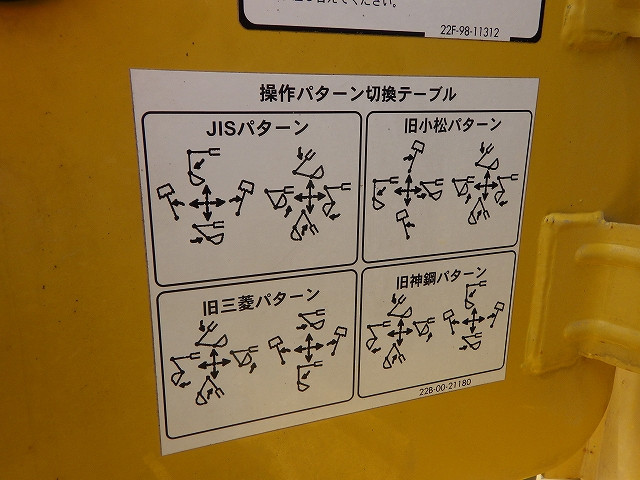 えてください。
22F-98-11312
操作パターン切換テーブル
JISパターン
旧小松パターン
旧三菱パターン
旧神鋼パターン
22B-00-21180